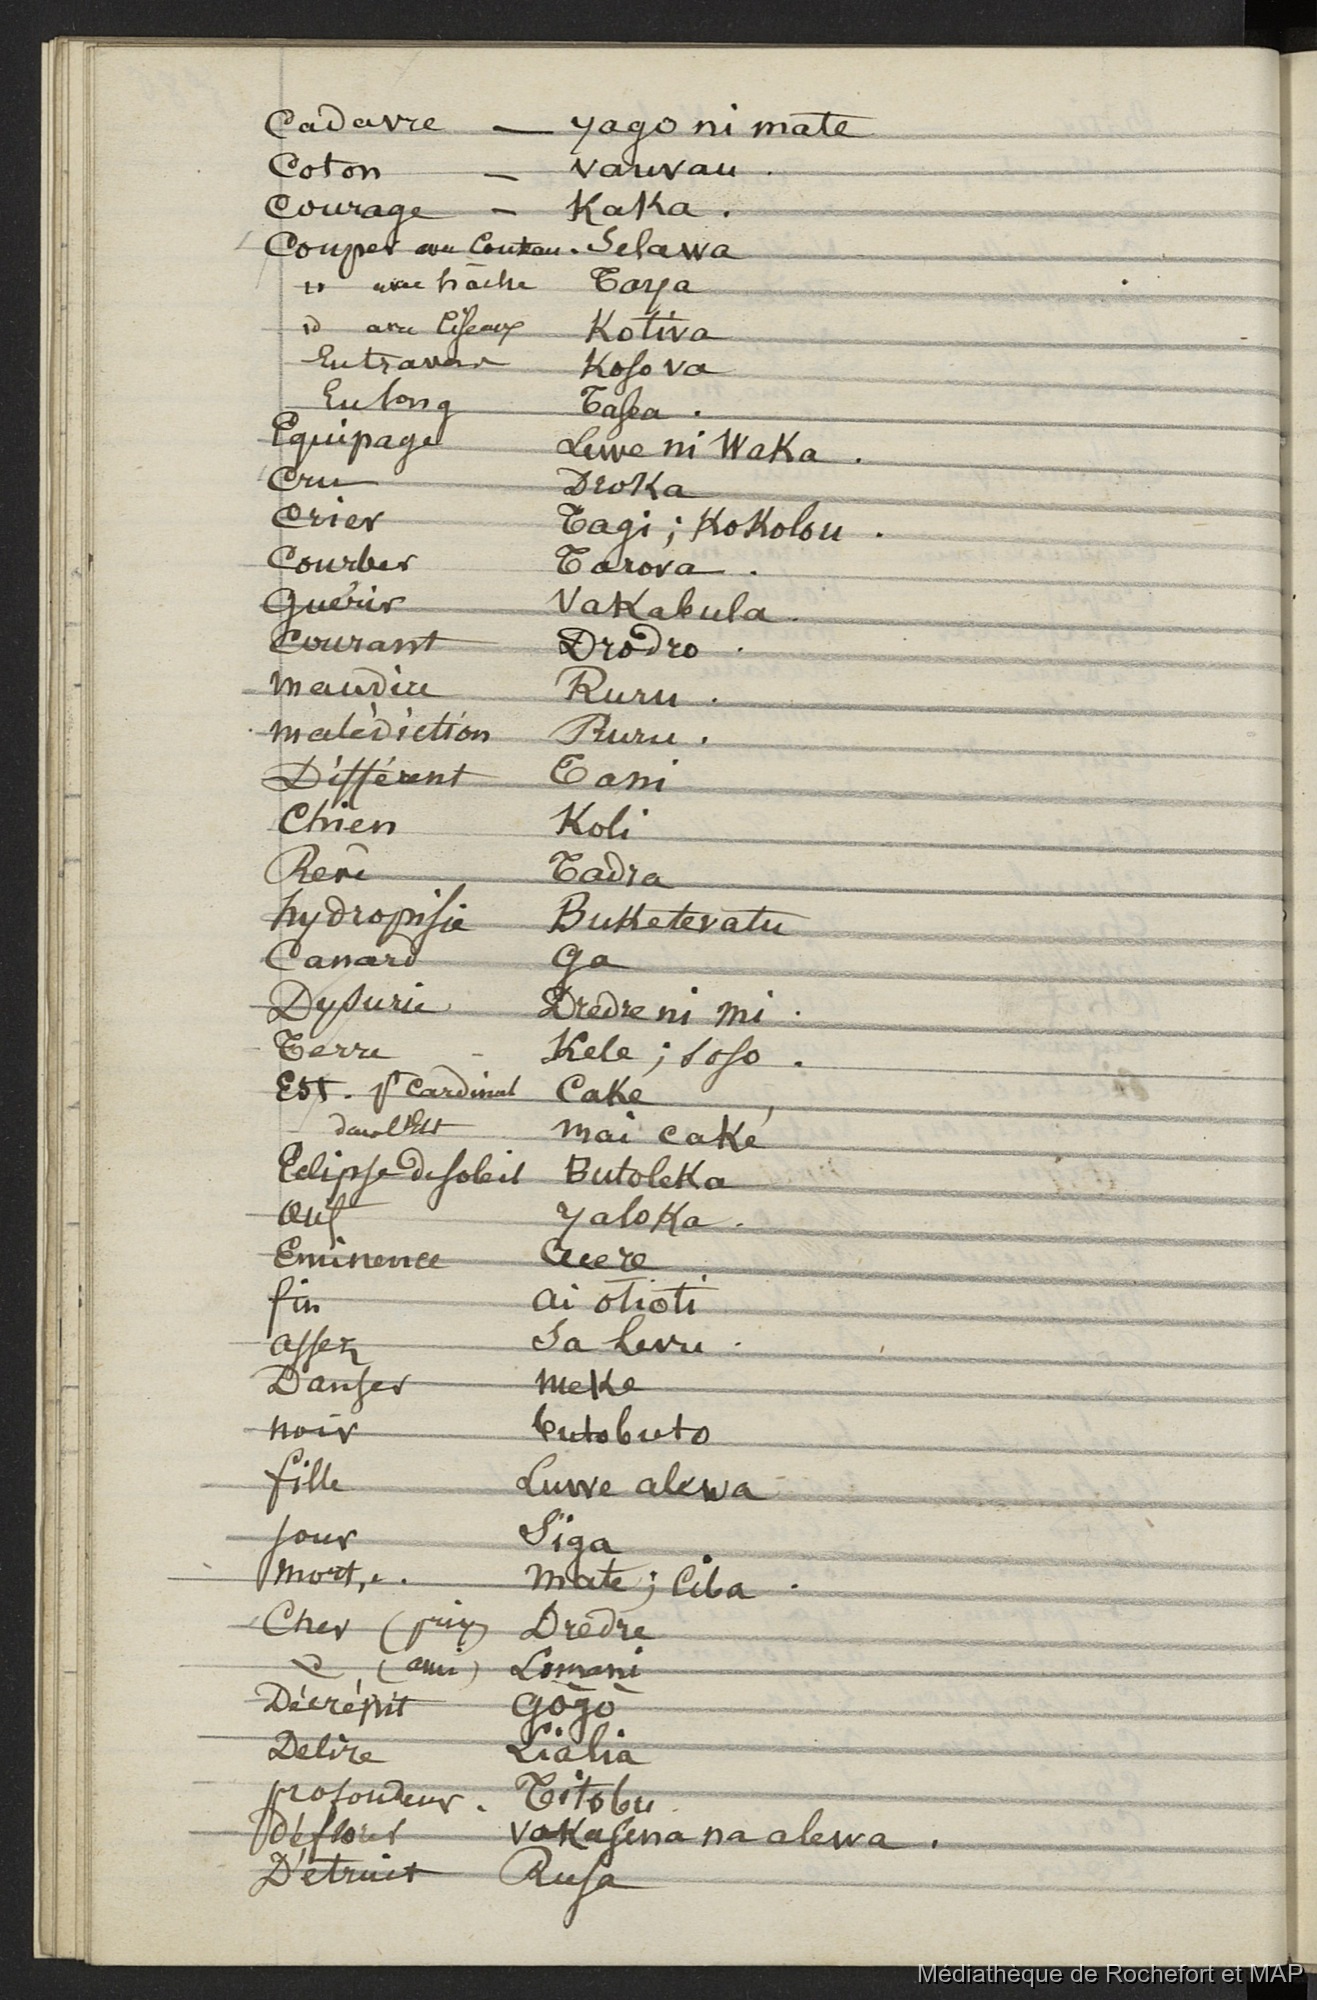 Cadavre — yago ni mate
Coton — vauvau.
Courage — Kaka.
Couper avec Couteau. Selawa
id avec hâche Taya
id avec Ciseaux Kotiva
En travers Kosova
En long Tasea.
Equipage Luve ni Waka.
Cru Droka
Crier Tagi; Kokolou.
Courber Tarova.
Guérir Vakabula.
Courant Drodro.
maudire Ruru.
malédiction Ruru.
Différent Tani
Chien Koli
Revê Tadra
hydropisie Buketevatu
Canard Ga
Dysurie Dredre ni mi.
Terre - Kele; soso.
Est. pt Cardinal Cake
dans l'Est mai caké
Eclipse de soleil Butoleka
Œuf yaloka.
Eminence Cecere
fin ai otioti
assez Sa levu.
Danser meke
noir butobuto
fille Luve alewa
jour Siga
mort,.. mate; Ciba.
Cher (prix) Dredre
id (ami) Lomani
Décrépit Gōgō
Delire Lialia
profondeur. Titobu
Déflorer vakasena na alewa.
Détruit Rusa
Médiathèque de Rochefort et MAP